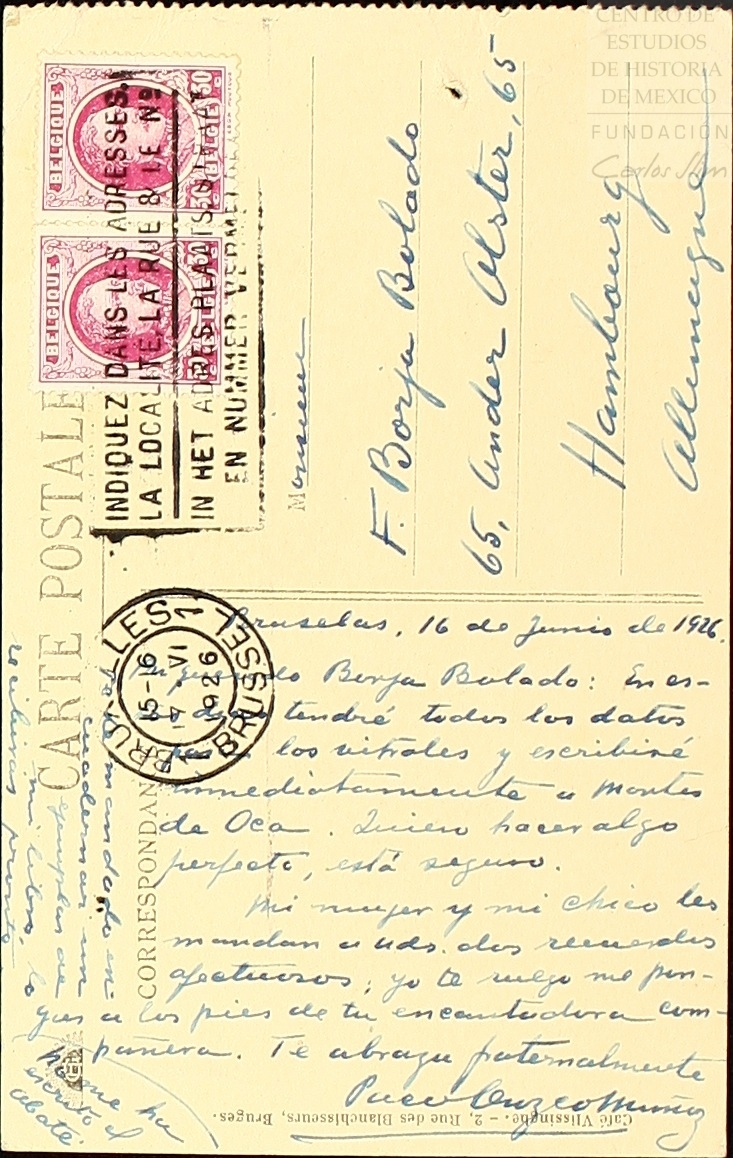 CENTRO DE
ESTUDIOS
DE HISTORIA
DE MEXICO
FUNDACIÓN
Carlos Slim
BELGIQUE BELGIË 30 C
BELGIQUE BELGIË 30 C
INDIQUEZ DANS LES ADRESSES
LA LOCALITE LA RUE & LE No
IN HET ADRES PLAATS STRAAT
EN NUMMER VERMELDEN
CARTE POSTALE
Monsieur
F. Borja Bolado
65, Ander Alster, 65
Hambourg
Allemagne
BRUXELLES 1
15-16
17 VI
1926
1 BRUSSEL
CORRESPONDAN
Bruselas, 16 de Junio de 1926.
Mi querido Borja Bolado: En es-
tendré todos los datos
para los vitrales y escribiré
inmediatamente a Montes
de Oca. Quiero hacer algo
perfecto, está seguro.
Mi mujer y mi chico les
mandan a uds. dos recuerdos
afectuosos; yo te ruego me pon-
gas a los pies de tu encantadora com-
pañera. Te abraza fraternalmente
Paco Orozco Muñoz
mandado en-
cuadernar un
ejemplar de
mi libro, lo
recibirás pronto
que ha
escrito el
abate.
Café Vlissinghe. - 2, Rue des Blanchisseurs, Bruges.